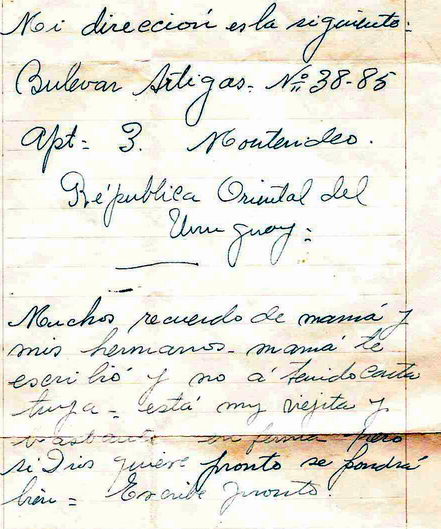 Mi dirección es la siguiente:
Bulevar Artigas. Nº 38-85
Apt= 3. Montevideo.
Républica Oriental del
Uruguay=
Muchos recuerdo de mamá y
mis hermanos - mamá te
escribió y no á tenido carta
tuya = está muy viejita y
bastante enferma pero
si Dios quiere pronto se pondrá
bien = Escribe pronto.